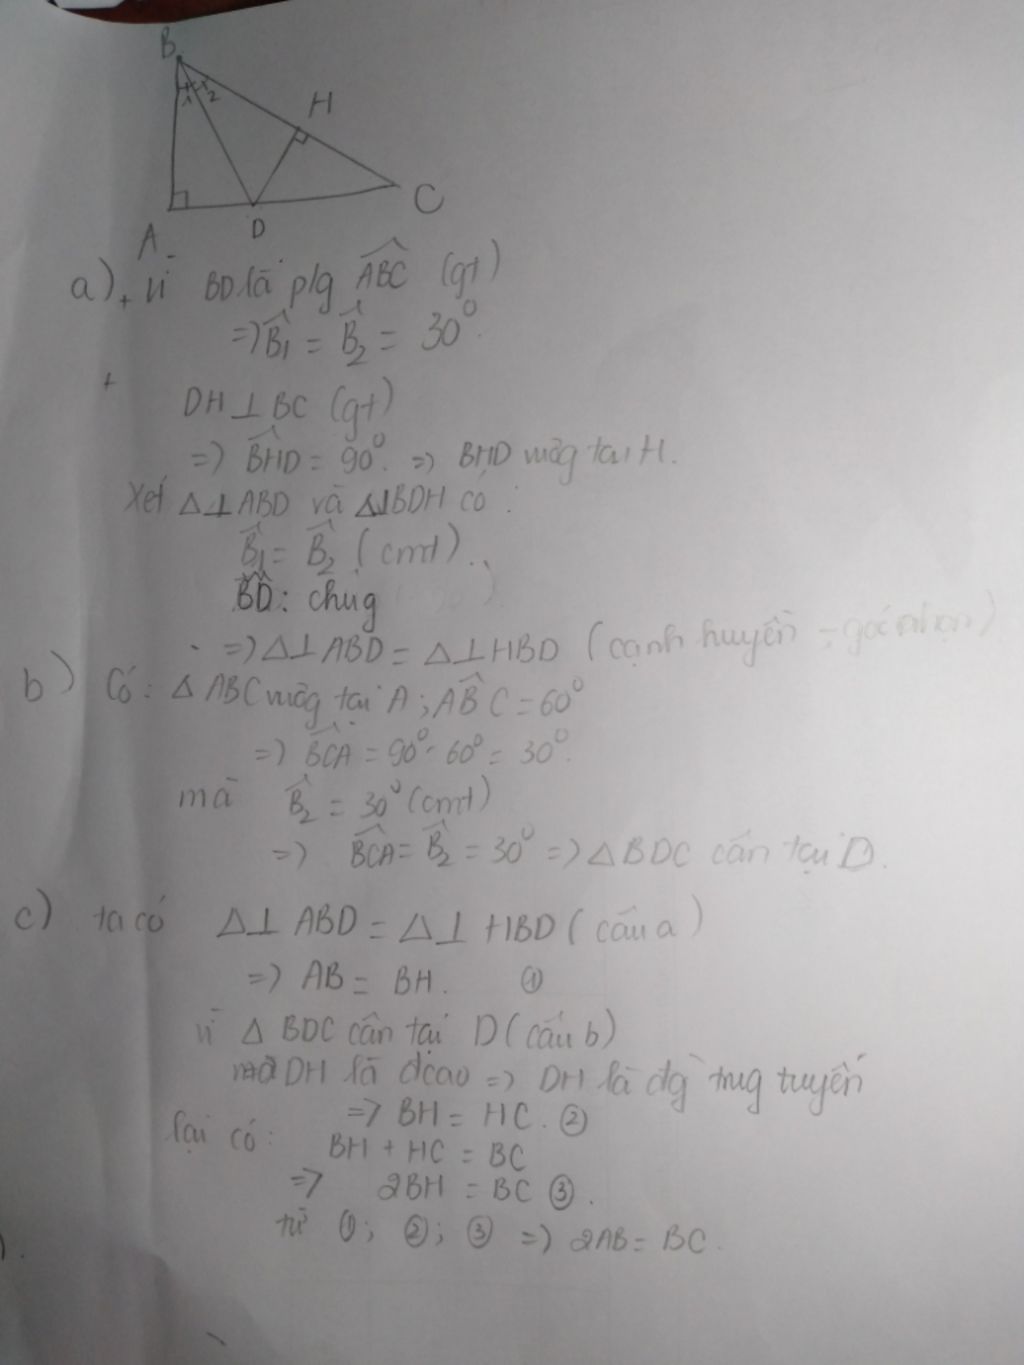 B
1 2
H
C
A
D
a) + Vì BD là p/g \widehat{ABC} (gt)
=> \widehat{B}₁ = \widehat{B}₂ = 30°.
+
DH ⊥ BC (gt)
=> \widehat{BHD} = 90°. => BHD vuôg tại H.
Xét Δ⊥ABD và Δ⊥BDH có :
\widehat{B}₁ = \widehat{B}₂ (cmt)
BD : chug
=> Δ⊥ABD = Δ⊥HBD (cạnh huyền - góc nhọn)
b) Có : Δ ABC vuôg tại A ; \widehat{ABC} = 60°
=> \widehat{BCA} = 90° - 60° = 30°.
mà \widehat{B}₂ = 30° (cmt)
=> \widehat{BCA} = \widehat{B}₂ = 30° => Δ BDC cân tại D.
c) ta có Δ⊥ ABD = Δ⊥ HBD (câu a)
=> AB = BH. ①
vì Δ BDC cân tại D (câu b)
mà DH là đcao => DH là đg trug tuyến
=> BH = HC. ②
lại có : BH + HC = BC
=> 2BH = BC ③.
từ ①; ②; ③ => 2AB = BC.